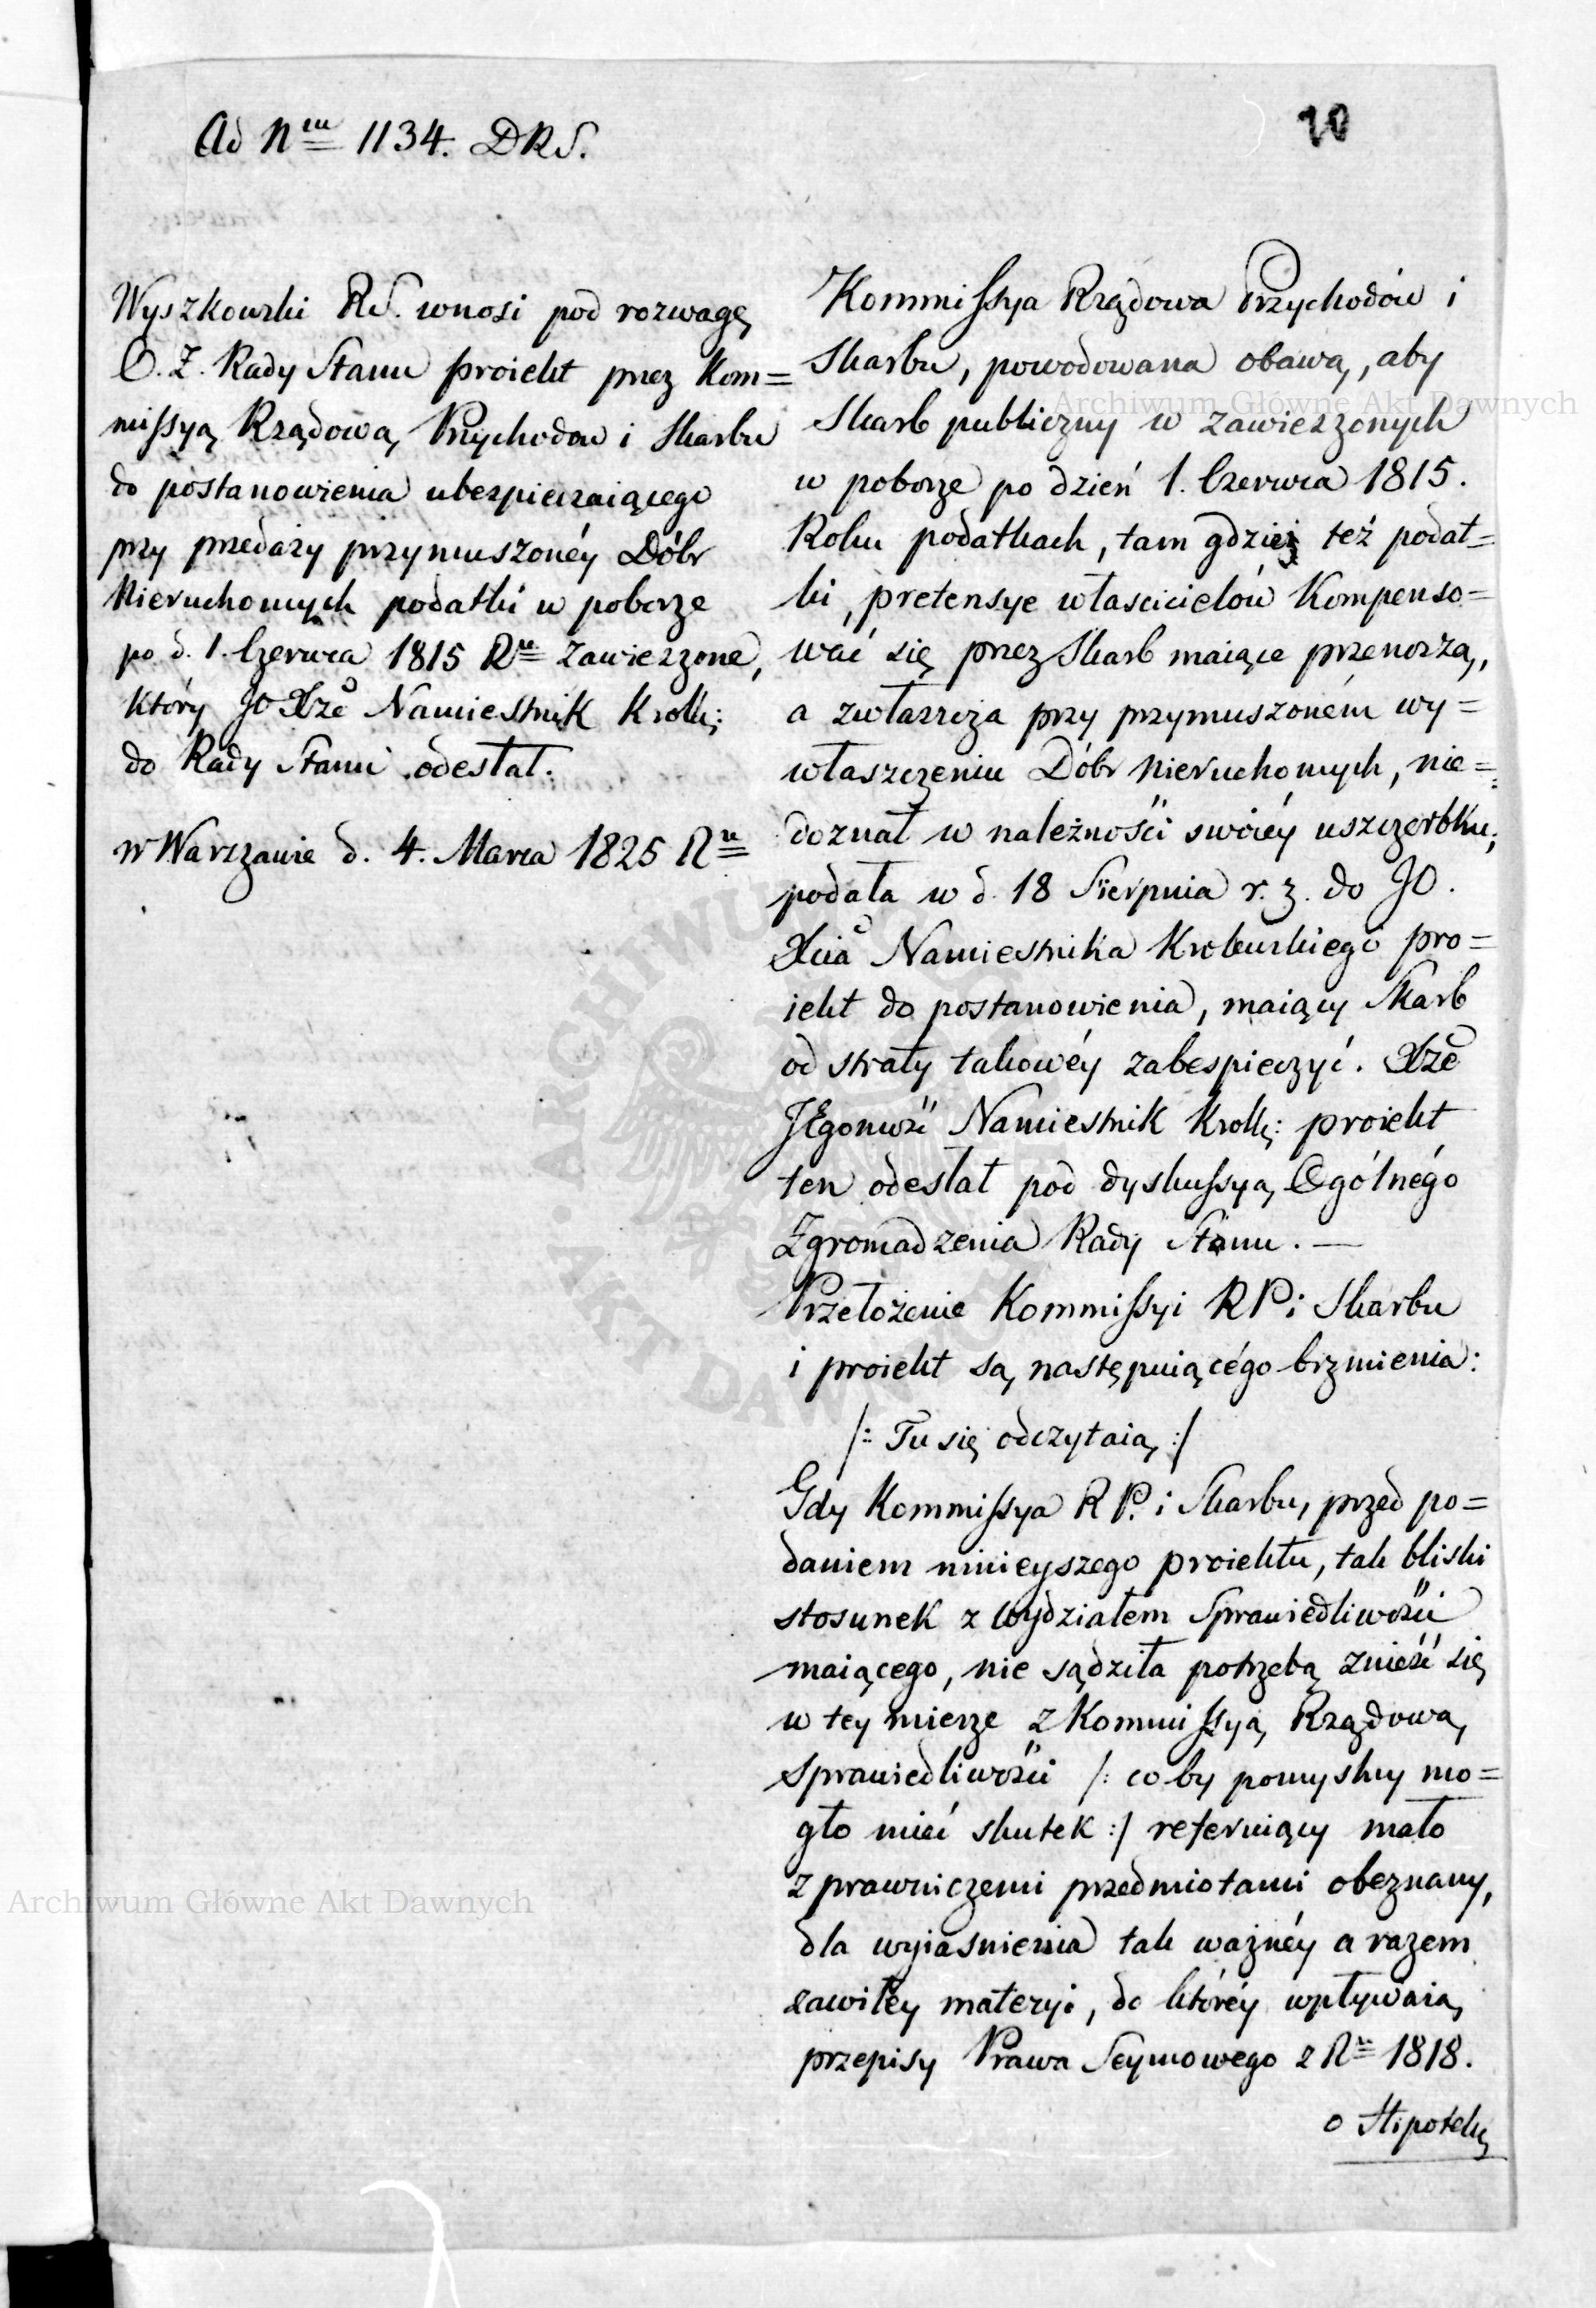 Ad Nru 1134. DRS.
20
Wyszkowski RS. wnosi pod rozwagę
O. Z. Rady Stanu proiekt przez Kom=
missyą Rządową Przychodow i Skarbu
do postanowienia ubezpieczaiącego
przy przedaży przymuszonéy Dóbr
Nieruchomych podatki w poborze
po d. 1. Czerwca 1815 Ru zawieszone,
który JO Xże Namiestnik Królk:
do Rady Stanu odesłał.
w Warszawie d. 4. Marca 1825 Ru
Kommissya Rządowa Przychodów i
Skarbu, powodowana obawą, aby
Skarb publiczny w zawieszonych
w poborze po dzień 1. Czerwca 1815.
Roku podatkach, tam gdzie też podat=
ki, pretensye własccicielów Kompenso=
wać się przez Skarb maiące przenoszą,
a zwłaszcza przy przymuszoném wy=
właszczeniu Dóbr Nieruchomych, nie=
doznał w należności swoiéy uszczerbku;
podała w d. 18 Sierpnia r. z. do JO.
Xcia Namiestnika Krolewskiego pro=
iekt do postanowienia, maiący Skarb
od straty takowéy zabespieczyć. Xże
JEgomość Namiestnik Krolk: proiekt
ten odesłał pod dyskussyą Ogólnégo
Zgromadzenia Rady Stanu. —
Przełożenie Kommissyi RP i Skarbu
i proiekt są następuiącégo brzmienia:
/: Tu się odczytaią :/
Gdy Kommissya R P. i Skarbu, przed po=
daniem ninieyszego proiektu, tak bliski
stosunek z wydziałem Sprawiedliwości
maiącego, nie sądziła potrzebą znieść się
w tey mierze z Kommissyą Rządową
Sprawiedliwości /: co by pomyslny mo=
gło mieć skutek :/ referuiący mało
z prawniczemi przedmiotami obeznany,
dla wyiasnienia tak ważnéy a razem
zawiłéy materyi, do któréy wpływaią
przepisy Prawa Seymowego z Ru 1818.
o Hipotekę
Archiwum Główne Akt Dawnych
Archiwum Główne Akt Dawnych